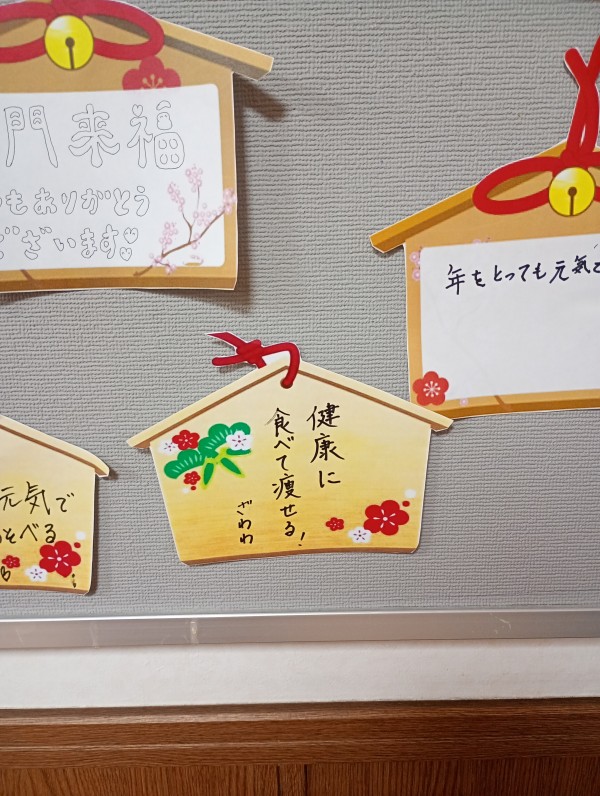 門来福
もありがとう
ございます
年をとっても元気
健康に
食べて痩せる!
ざわわ
元気で
そべる